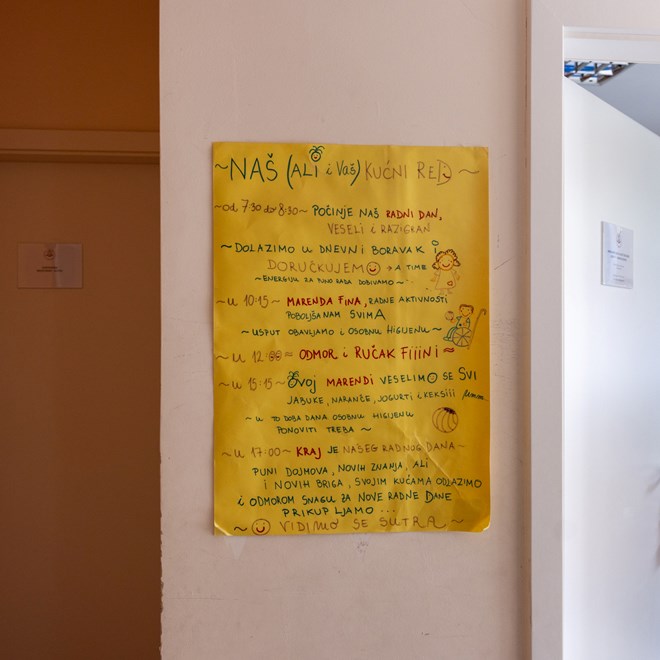 ~NAŠ (ALI i VAŠ) KUĆNI RED~
~od 7:30 do 8:30~ POČINJE NAŠ RADNI DAN,
VESELI i RAZIGRAN
~DOLAZIMO U DNEVNI BORAVAK i
DORUČKUJEMO → A TIME
~ENERGIJU ZA PUNO RADA DOBIVAMO~
~U 10:15~ MARENDA FINA, RADNE AKTIVNOSTI
POBOLJŠA NAM SVIMA
~USPUT OBAVLJAMO i OSOBNU HIGIJENU~
~U 12:00≈ ODMOR i RUČAK FIIINI≈
~U 15:15~ OVOJ MARENDI VESELIMO SE SVI
JABUKE, NARANČE, JOGURTI i KEKSIII
~U TO DOBA DANA OSOBNU HIGIJENU
PONOVITI TREBA~
~U 17:00~ KRAJ JE NAŠEG RADNOG DANA~
PUNI DOJMOVA, NOVIH ZNANJA, ALI
i NOVIH BRIGA, SVOJIM KUĆAMA ODLAZIMO
i ODMOROM SNAGU ZA NOVE RADNE DANE
PRIKUPLJAMO...
~ VIDIMO SE SUTRA~